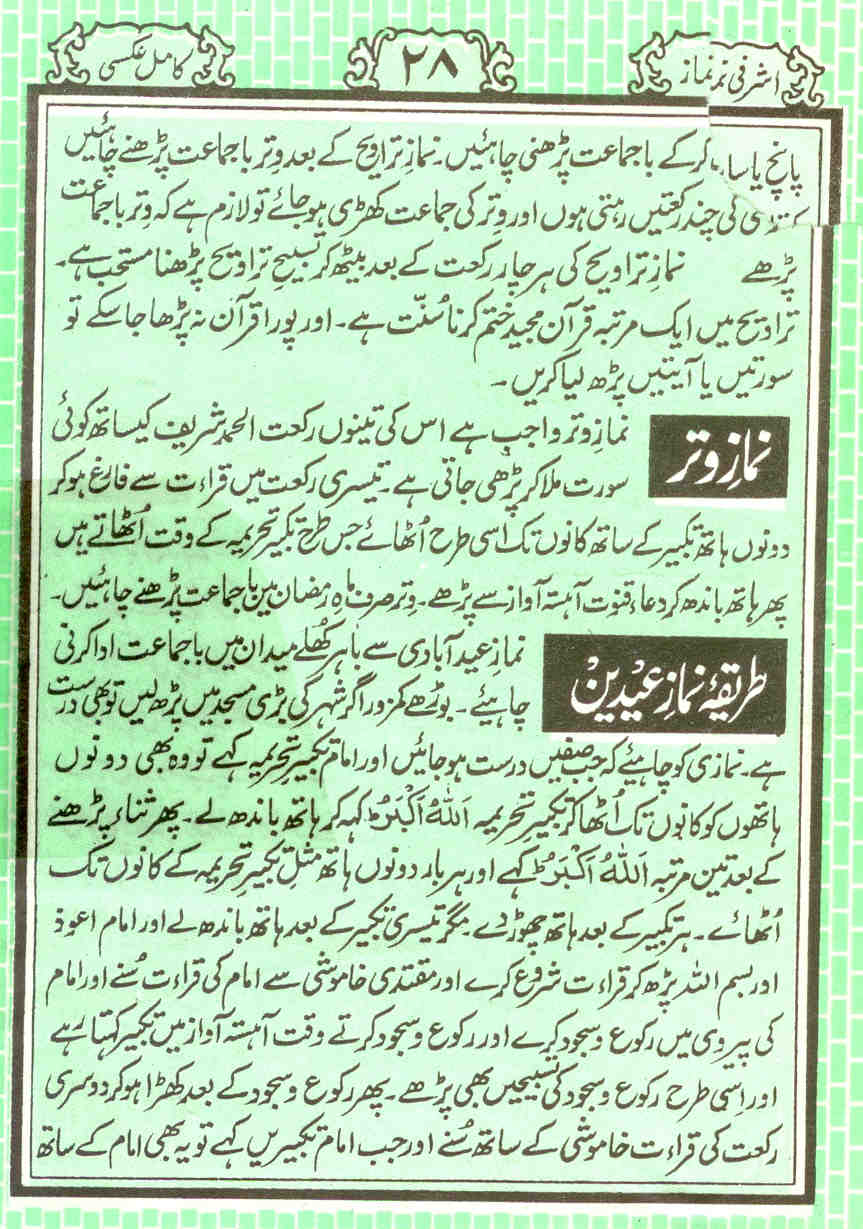 اشرفی نماز
۲۸
کامل عکسی
پانچ یا کرکے باجماعت پڑھنی چاہئیں۔ نمازِ تراویح کے بعد وتر باجماعت پڑھنے چاہئیں
کی چند رکعتیں رہتی ہوں اور وتر کی جماعت کھڑی ہو جائے تو لازم ہے کہ وتر باجماعت
پڑھے نمازِ تراویح کی ہر چار رکعت کے بعد بیٹھ کر تسبیحِ تراویح پڑھنا مستحب ہے۔
تراویح میں ایک مرتبہ قرآن مجید ختم کرنا سُنّت ہے۔ اور پورا قرآن نہ پڑھا جا سکے تو
سورتیں یا آیتیں پڑھ لیا کریں۔
نمازِ وتر
نمازِ وتر واجب ہے اس کی تینوں رکعت الحمد شریف کیساتھ کوئی
سورت ملا کر پڑھی جاتی ہے۔ تیسری رکعت میں قراءت سے فارغ ہو کر
دونوں ہاتھ تکبیر کے ساتھ کانوں تک اسی طرح اُٹھائے جس طرح تکبیر تحریمہ کے وقت اُٹھاتے ہیں
پھر ہاتھ باندھ کر دعاء قنوت آہستہ آواز سے پڑھے۔ وتر صرف ماہِ رمضان میں باجماعت پڑھنے چاہئیں۔
طریقۂ نمازِ عیدین
نمازِ عید آبادی سے باہر کُھلے میدان میں باجماعت ادا کرنی
چاہیئے۔ بوڑھے کمزور اگر شہر کی بڑی مسجد میں پڑھ لیں تو بھی درست
ہے۔ نمازی کو چاہیئے کہ جب صفیں درست ہو جائیں اور امام تکبیرِ تحریمہ کہے تو وہ بھی دونوں
ہاتھوں کو کانوں تک اُٹھا کر تکبیرِ تحریمہ اَللّٰهُ اَکْبَرُ کہہ کر ہاتھ باندھ لے۔ پھر ثناء پڑھنے
کے بعد تین مرتبہ اَللّٰهُ اَکْبَرُ کہے اور ہر بار دونوں ہاتھ مثلِ تکبیرِ تحریمہ کے کانوں تک
اُٹھائے۔ ہر تکبیر کے بعد ہاتھ چھوڑ دے۔ مگر تیسری تکبیر کے بعد ہاتھ باندھ لے اور امام اعوذ
اور بسم اللہ پڑھ کر قراءت شروع کرے اور مقتدی خاموشی سے امام کی قراءت سُنے اور امام
کی پیروی میں رکوع و سجود کرے اور رکوع و سجود کرتے وقت آہستہ آواز میں تکبیر کہتا رہے
اور اِسی طرح رکوع و سجود کی تسبیحیں بھی پڑھے۔ پھر رکوع و سجود کے بعد کھڑا ہو کر دوسری
رکعت کی قراءت خاموشی کے ساتھ سُنے اور جب امام تکبیریں کہے تو یہ بھی امام کے ساتھ